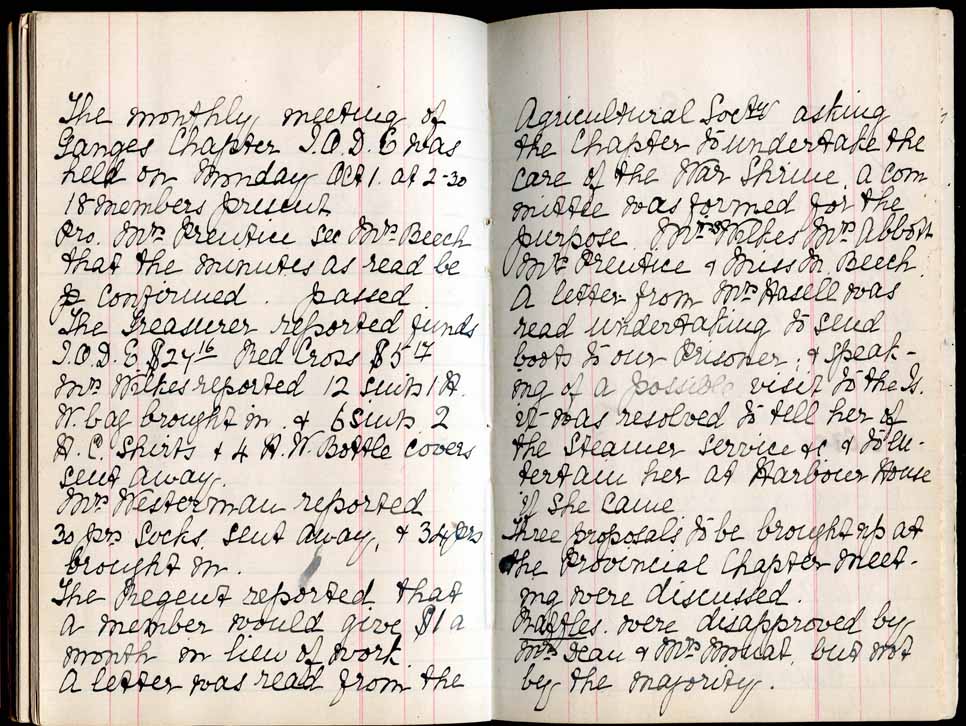 The monthly meeting of
Ganges Chapter I.O.D.E was
held on Monday Oct 1. at 2-30
18 members present
Pro. Mrs Prentice Sec Mrs Beech
that the minutes as read be
confirmed. passed
The Treasurer reported funds
I.O.D.E $24 16 Red Cross $5 17
Mrs Wilkes reported 12 suits 1 H.
W. bag brought in. & 6 suits 2
H.C. Shirts & 4 H.W. Bottle covers
sent away.
Mrs Westerman reported
30 prs Socks sent away, & 34 prs
brought in.
The Regent reported that
a member would give $1 a
month in lieu of work
A letter was read from the
Agricultural Socty asking
the Chapter to undertake the
care of the War Shrine, a com
mittee was formed for the
purpose. Mrs Wilkes Mrs Abbott
Mrs Prentice & Miss M. Beech.
A letter from Mrs Hasell was
read undertaking to send
boots to our Prisoner; & speak-
ing of a possible visit to the Is.
it was resolved to tell her of
the Steamer service &c & to en-
tertain her at Harbour House
if she came
Three proposals to be brought up at
the Provincial Chapter meet-
ing were discussed.
Raffles. were disapproved by
Mrs Dean & Mrs Mouat, but not
by the majority.